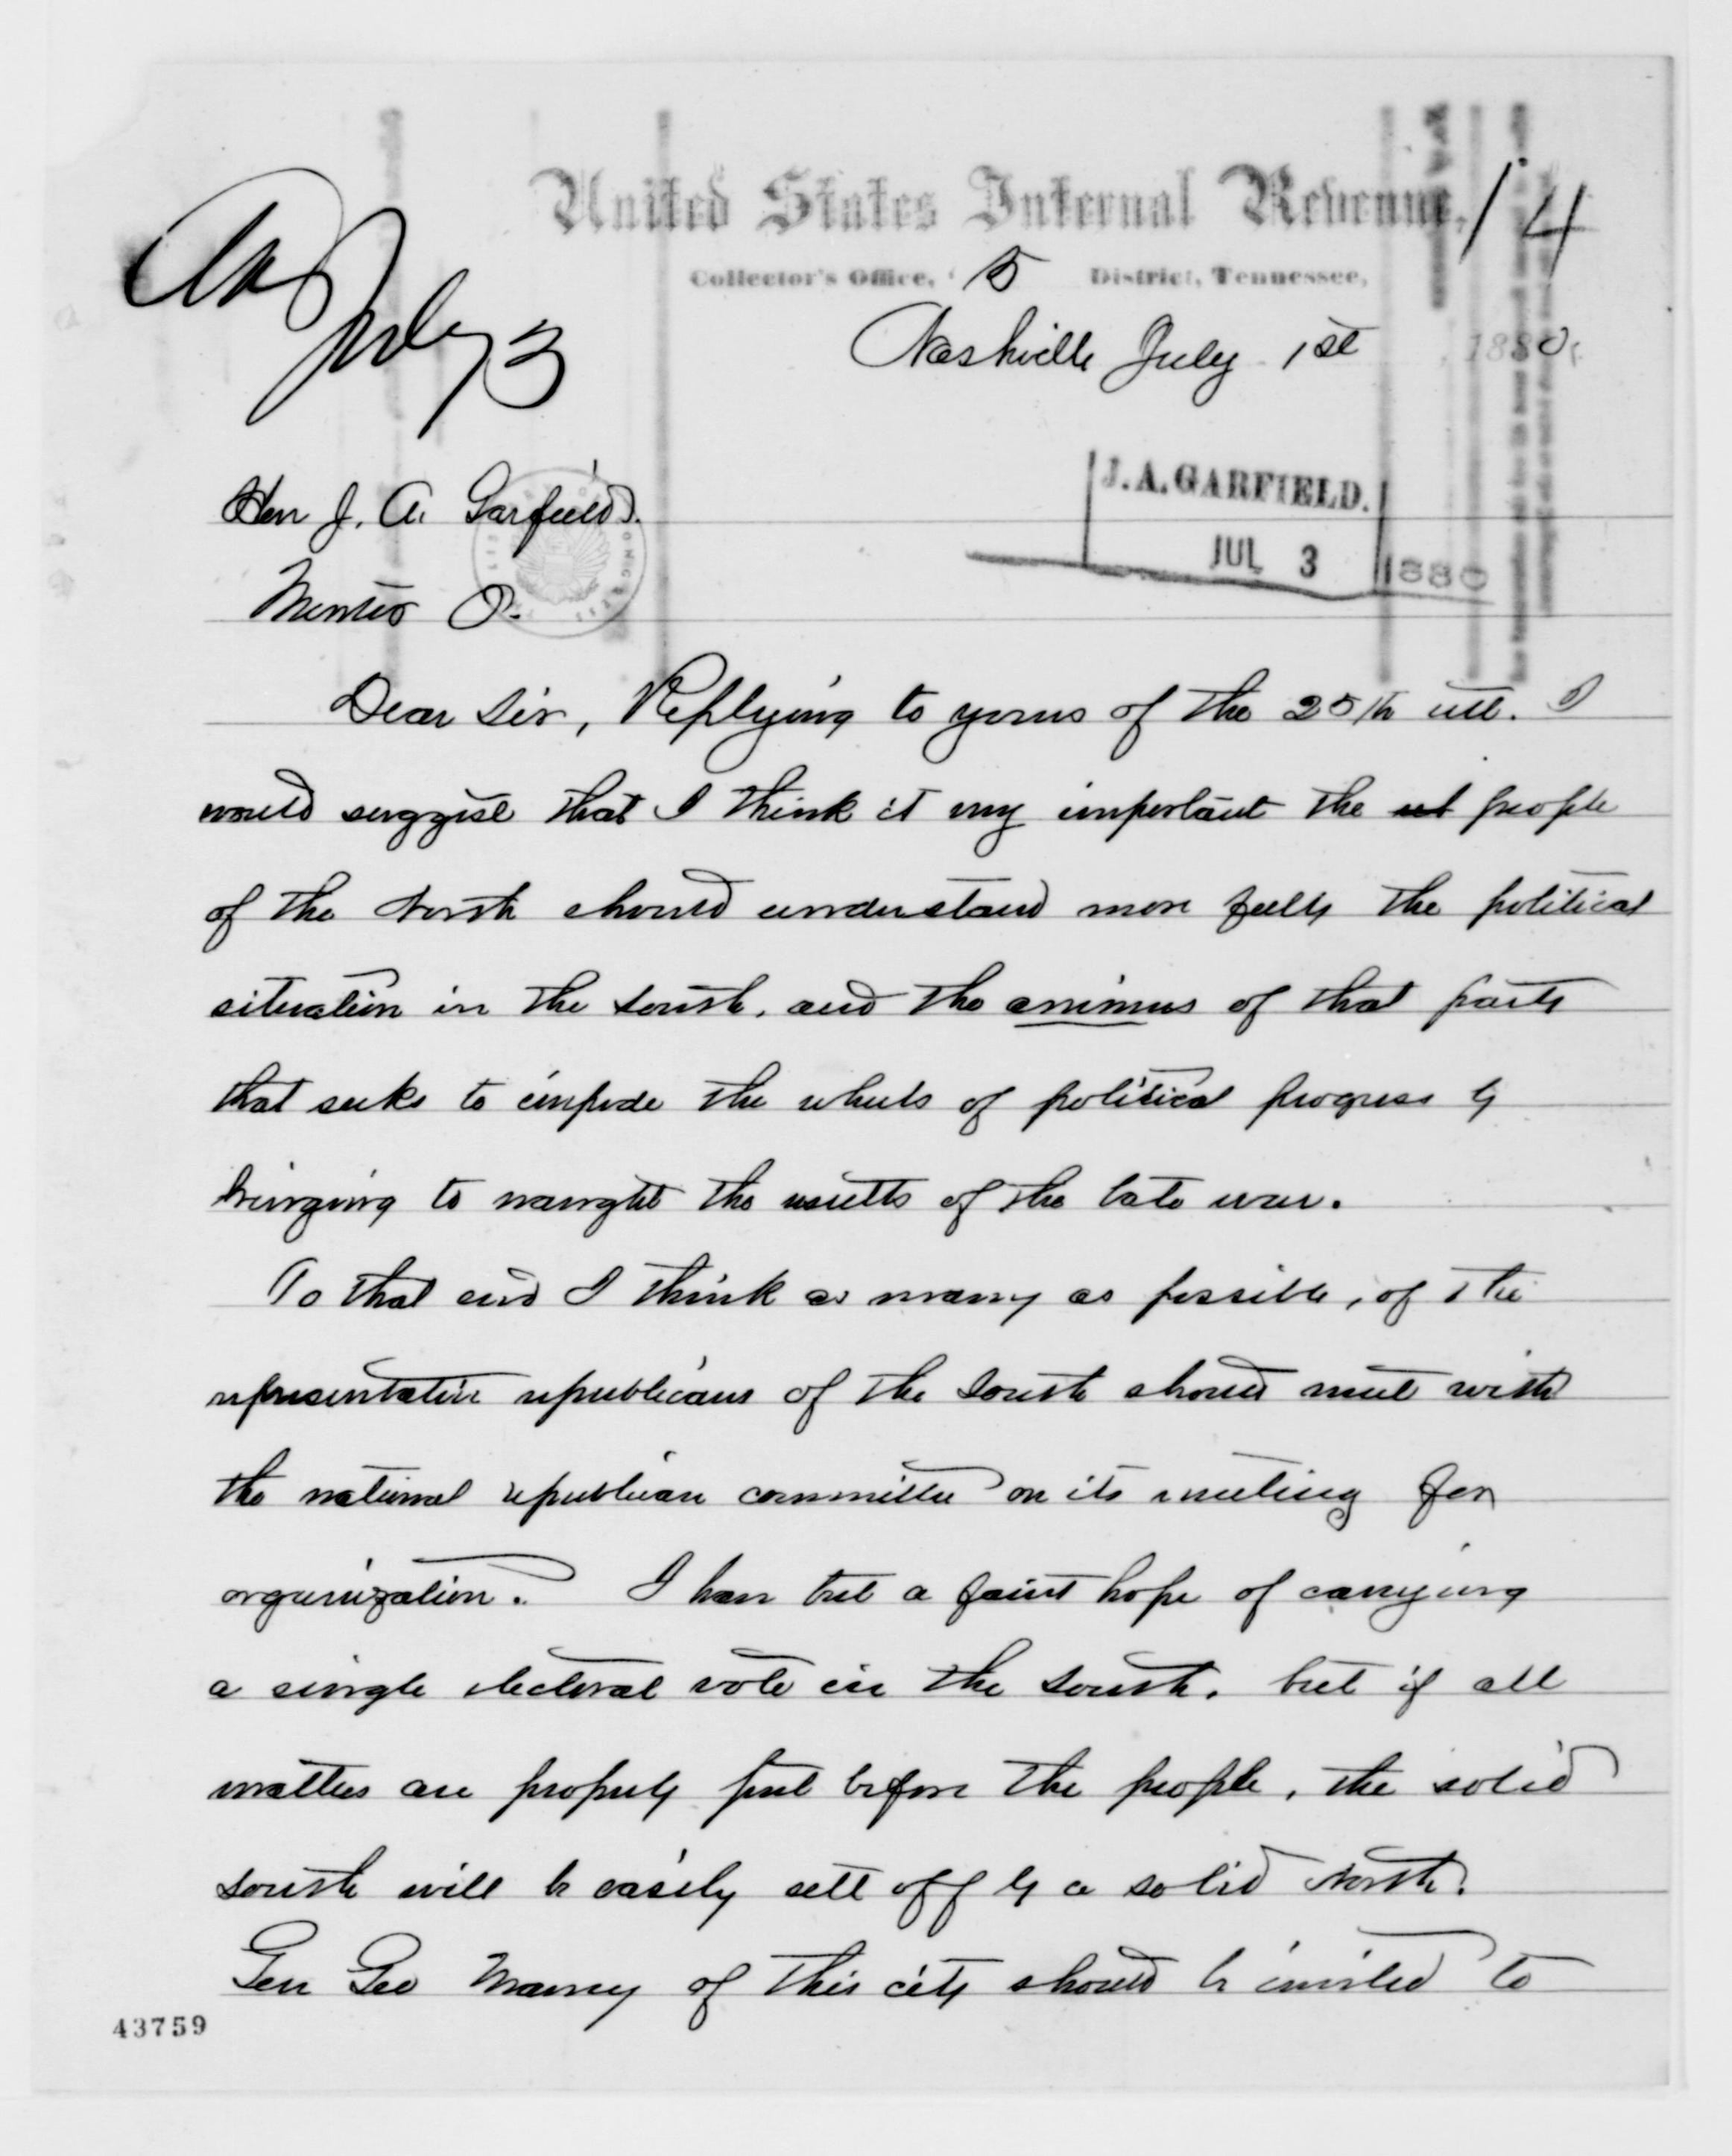 United States Internal Revenue,
14
Collector's Office, 5 District, Tennessee,
Ans
July 3
Nashville July 1st 1880,
J.A.GARFIELD.
JUL 3 1880
Hon J. A. Garfield.
Mentor O.
Dear Sir, Replying to yours of the 25th ult. I
would suggest that I think it very important the people
of the North should understand more fully the political
situation in the South, and the animus of that party
that seeks to impede the wheels of political progress by
bringing to naught the results of the late war.
To that end I think as many as possible, of the
representative republicans of the South should meet with
the national republican committee on its meeting for
organization. I have but a faint hope of carrying
a single electoral vote in the South, but if all
matters are properly put before the people, the solid
South will be easily sett off by a solid North.
Gen Geo Maney of this city should be invited to
43759